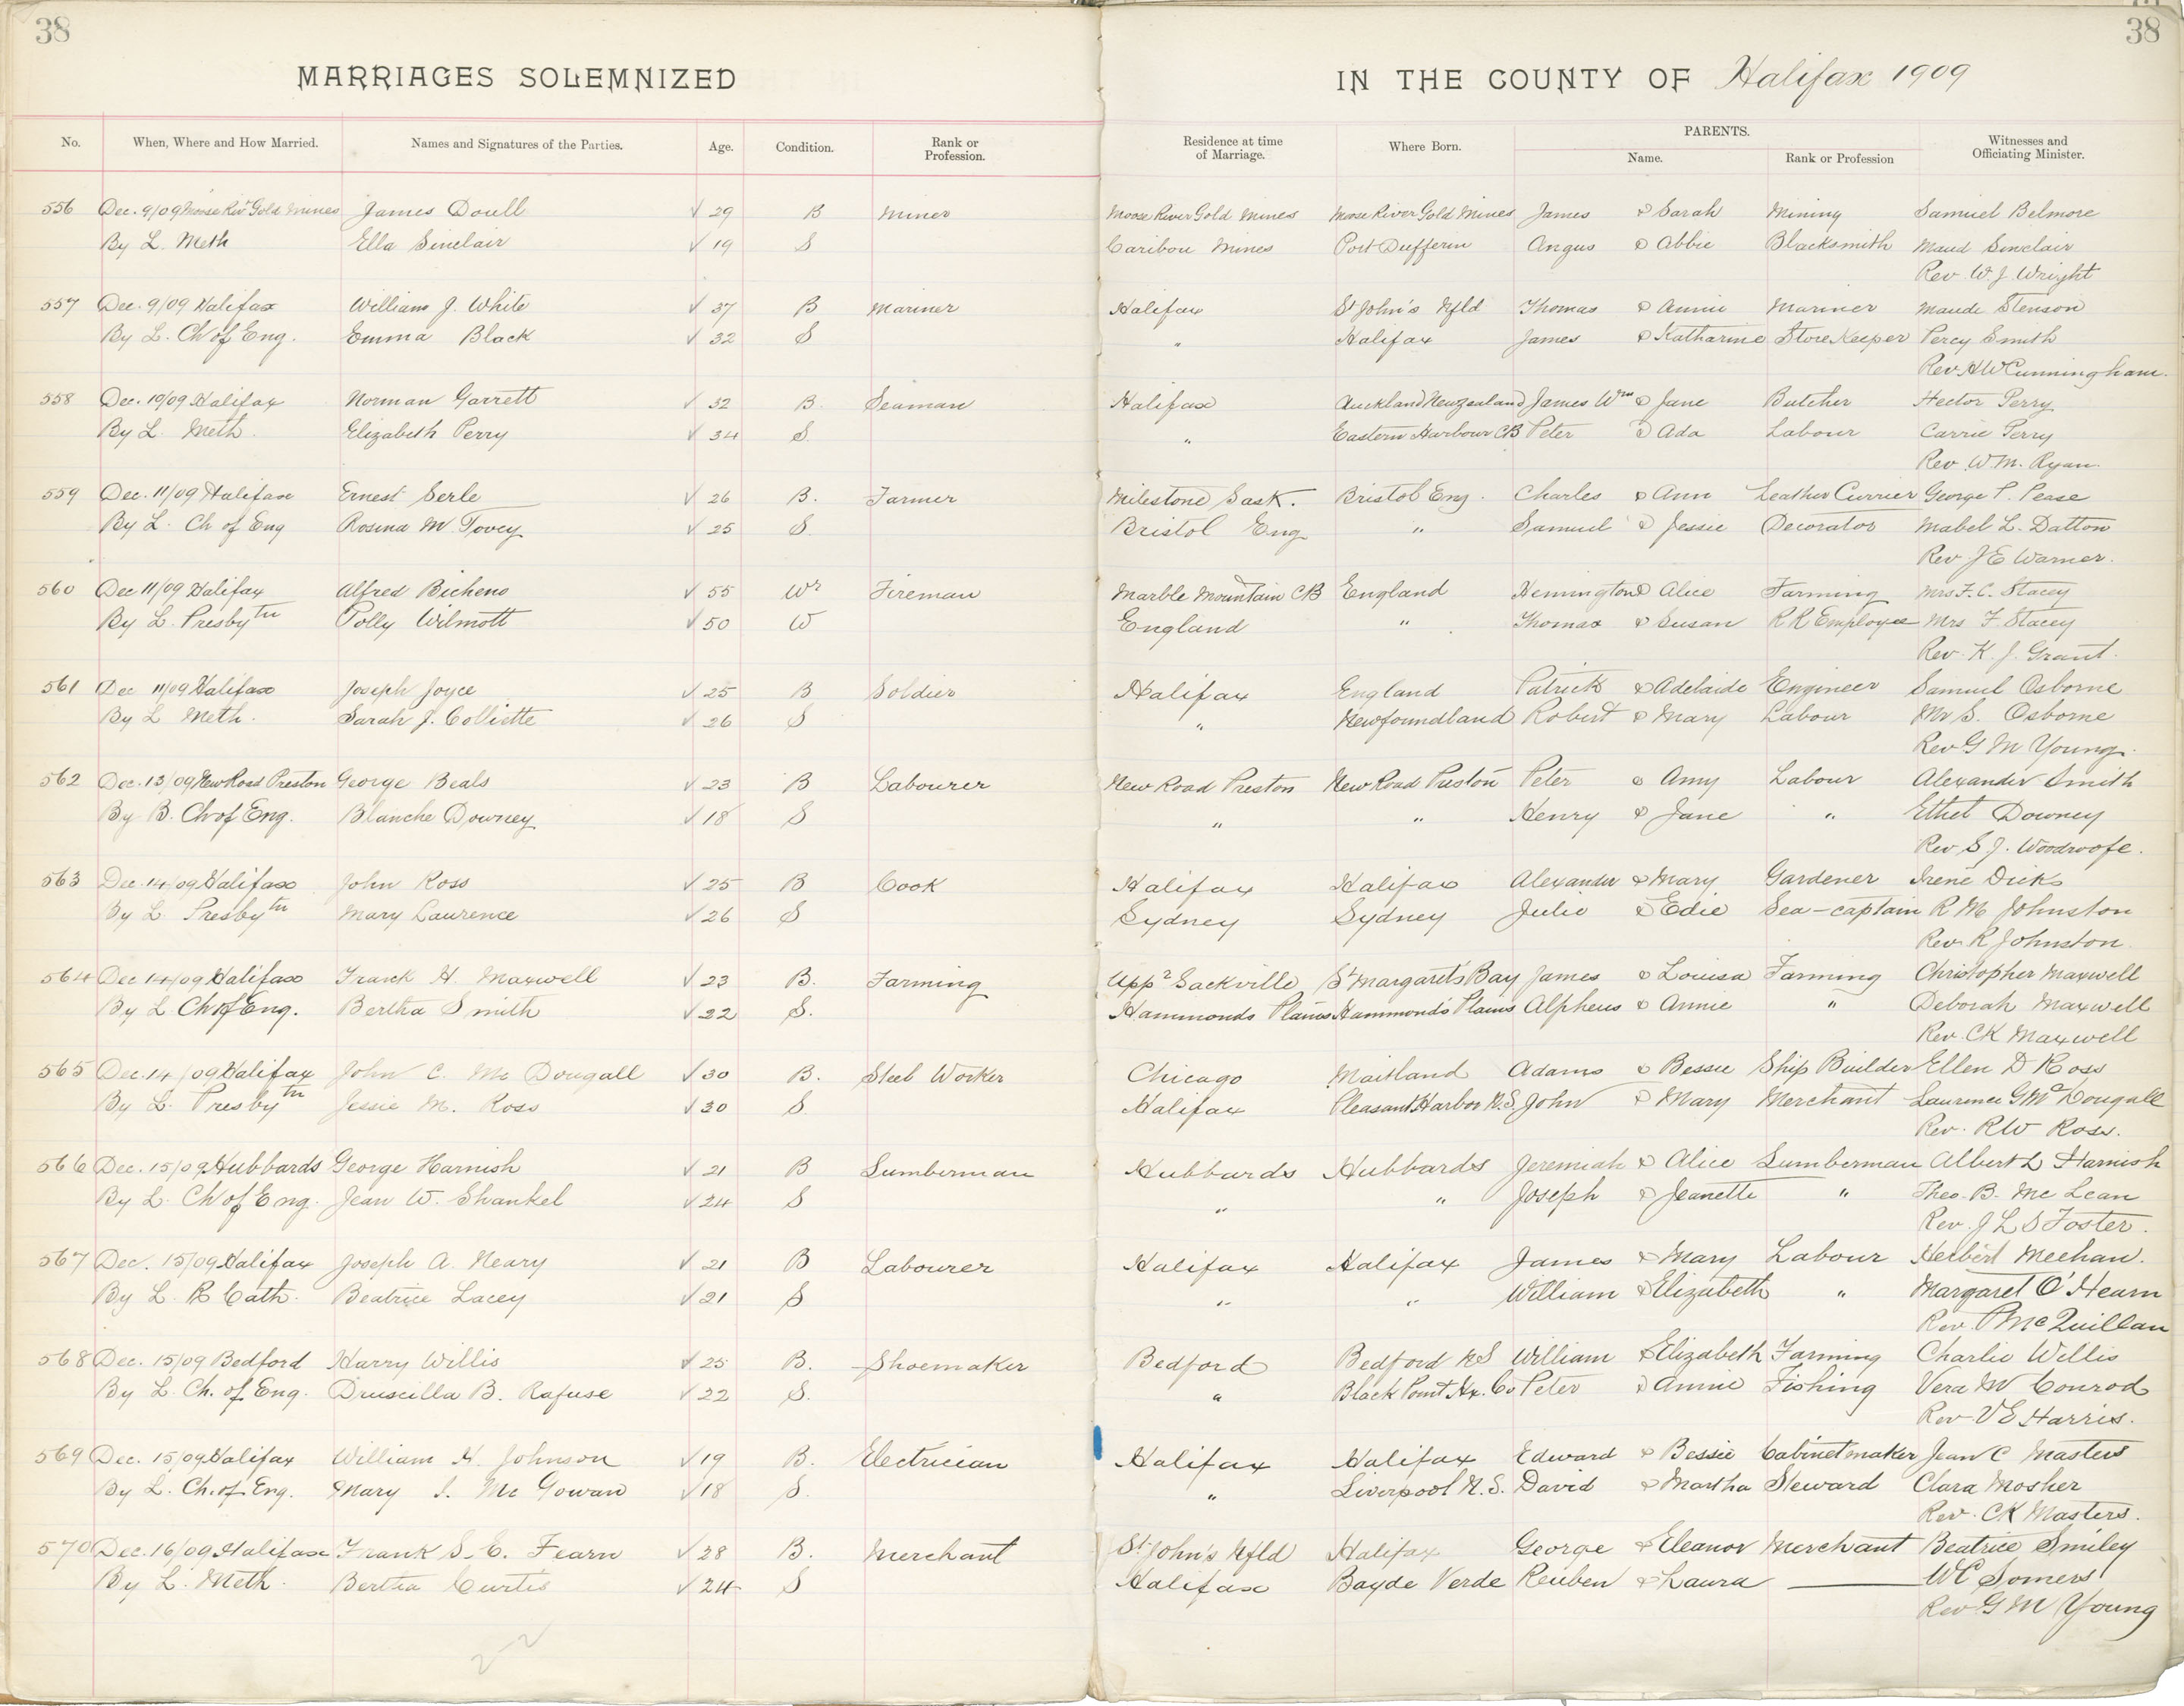 38
38
MARRIAGES SOLEMNIZED IN THE COUNTY OF Halifax 1909
No. When, Where and How Married. Names and Signatures of the Parties. Age. Condition. Rank or Profession. Residence at time of Marriage. Where Born. PARENTS. Name. Rank or Profession Witnesses and Officiating Minister.
556 Dec. 9/09 Moose Rivr Gold Mines James Doull √ 29 B Miner Moose River Gold Mines Moose River Gold Mines James & Sarah Mining Samuel Belmore
By L. Meth Ella Sinclair √ 19 S Caribou Mines Port Dufferin Angus & Abbie Blacksmith Maud Sinclair
Rev. W. J. Wright
557 Dec. 9/09 Halifax William J. White √ 37 B Mariner Halifax St John's Nfld Thomas & Annie Mariner Maude Stenson
By L. Ch of Eng. Emma Black √ 32 S " Halifax James & Katharine Store Keeper Percy Smith
Rev. H W Cunningham.
558 Dec. 10/09 Halifax Norman Garrett √ 32 B. Seaman Halifax Auckland New Zealand James Wm & Jane Butcher Hector Perry
By L. Meth. Elizabeth Perry √ 34 S. " Eastern Harbour CB Peter & Ada Labour Carrie Perry
Rev. W. M. Ryan.
559 Dec. 11/09 Halifax Ernest Serle √ 26 B. Farmer Milestone Sask. Bristol Eng. Charles & Ann Leather Currier George P. Pease
By L. Ch of Eng Rosina M Tovey √ 25 S. Bristol Eng " Samuel & Jessie Decorator Mabel L. Datton
Rev. J E Warner.
560 Dec 11/09 Halifax Alfred Bicheno √ 55 Wr Fireman Marble Mountain CB England Hemington & Alice Farming Mrs F. C. Stacey
By L. Presbytn Polly Wilmott √ 50 W England " Thomas & Susan R R Employee Mrs F. Stacey
Rev. K. J. Grant.
561 Dec 11/09 Halifax Joseph Joyce √ 25 B Soldier Halifax England Patrick & Adelaide Engineer Samuel Osborne
By L Meth. Sarah J. Colliette √ 26 S " Newfoundland Robert & Mary Labour Mr S. Osborne
Rev G M Young.
562 Dec. 13/09 New Road Preston George Beals √ 23 B Labourer New Road Preston New Road Preston Peter & Amy Labour Alexander Smith
By B. Ch of Eng. Blanche Downey √ 18 S " " Henry & Jane " Ethel Downey
Rev S J. Woodroofe.
563 Dec. 14/09 Halifax John Ross √ 25 B Cook Halifax Halifax Alexander & Mary Gardener Irene Dicks
By L. Presbytn Mary Laurence √ 26 S Sydney Sydney Julie & Edie Sea-captain R M Johnston
Rev. R Johnston
564 Dec 14/09 Halifax Frank H. Maxwell √ 23 B. Farming Uppr Sackville St Margaret's Bay James & Louisa Farming Christopher Maxwell
By L Ch of Eng. Bertha Smith √ 22 S. Hammonds Plains Hammonds Plains Alpheus & Annie " Deborah Maxwell
Rev. CK Maxwell
565 Dec. 14/09 Halifax John C. Mc Dougall √ 30 B. Steel Worker Chicago Maitland Adams & Bessie Ship Builder Ellen D Ross
By L. Presbytn Jessie M. Ross √ 30 S Halifax Pleasant Harbor N.S. John & Mary Merchant Laurence G McDougall
Rev. RW Ross.
566 Dec. 15/09 Hubbards George Harnish √ 21 B Lumberman Hubbards Hubbards Jeremiah & Alice Lumberman Albert L Harnish
By L. Ch of Eng. Jean W. Shankel √ 24 S " " Joseph & Jeanette " Theo. B. Mc Lean
Rev. J L S Foster.
567 Dec. 15/09 Halifax Joseph A. Neary √ 21 B Labourer Halifax Halifax James & Mary Labour Herbert Meehan.
By L. R Cath. Beatrice Lacey √ 21 S " " William & Elizabeth " Margaret O'Hearn
Rev. P Mc Quillan
568 Dec. 15/09 Bedford Harry Willis √ 25 B. Shoemaker Bedford Bedford NS William & Elizabeth Farming Charlie Willis
By L. Ch. of Eng. Druscilla B. Rafuse √ 22 S. " Black Point Hx. Co Peter & Annie Fishing Vera M Conrod
Rev V E Harris.
569 Dec. 15/09 Halifax William H. Johnson √ 19 B. Electrician Halifax Halifax Edward & Bessie Cabinetmaker Jean C Masters
By L. Ch. of Eng. Mary I. Mc Gowan √ 18 S. " Liverpool N.S. David & Martha Steward Clara Mosher
Rev. CK Masters.
570 Dec. 16/09 Halifax Frank S. C. Fearn √ 28 B. Merchant St John's Nfld Halifax George & Eleanor Merchant Beatrice Smiley
By L. Meth. Bertha Curtis √ 24 S Halifax Bay de Verde Reuben & Laura — WC Somers
Rev G M Young